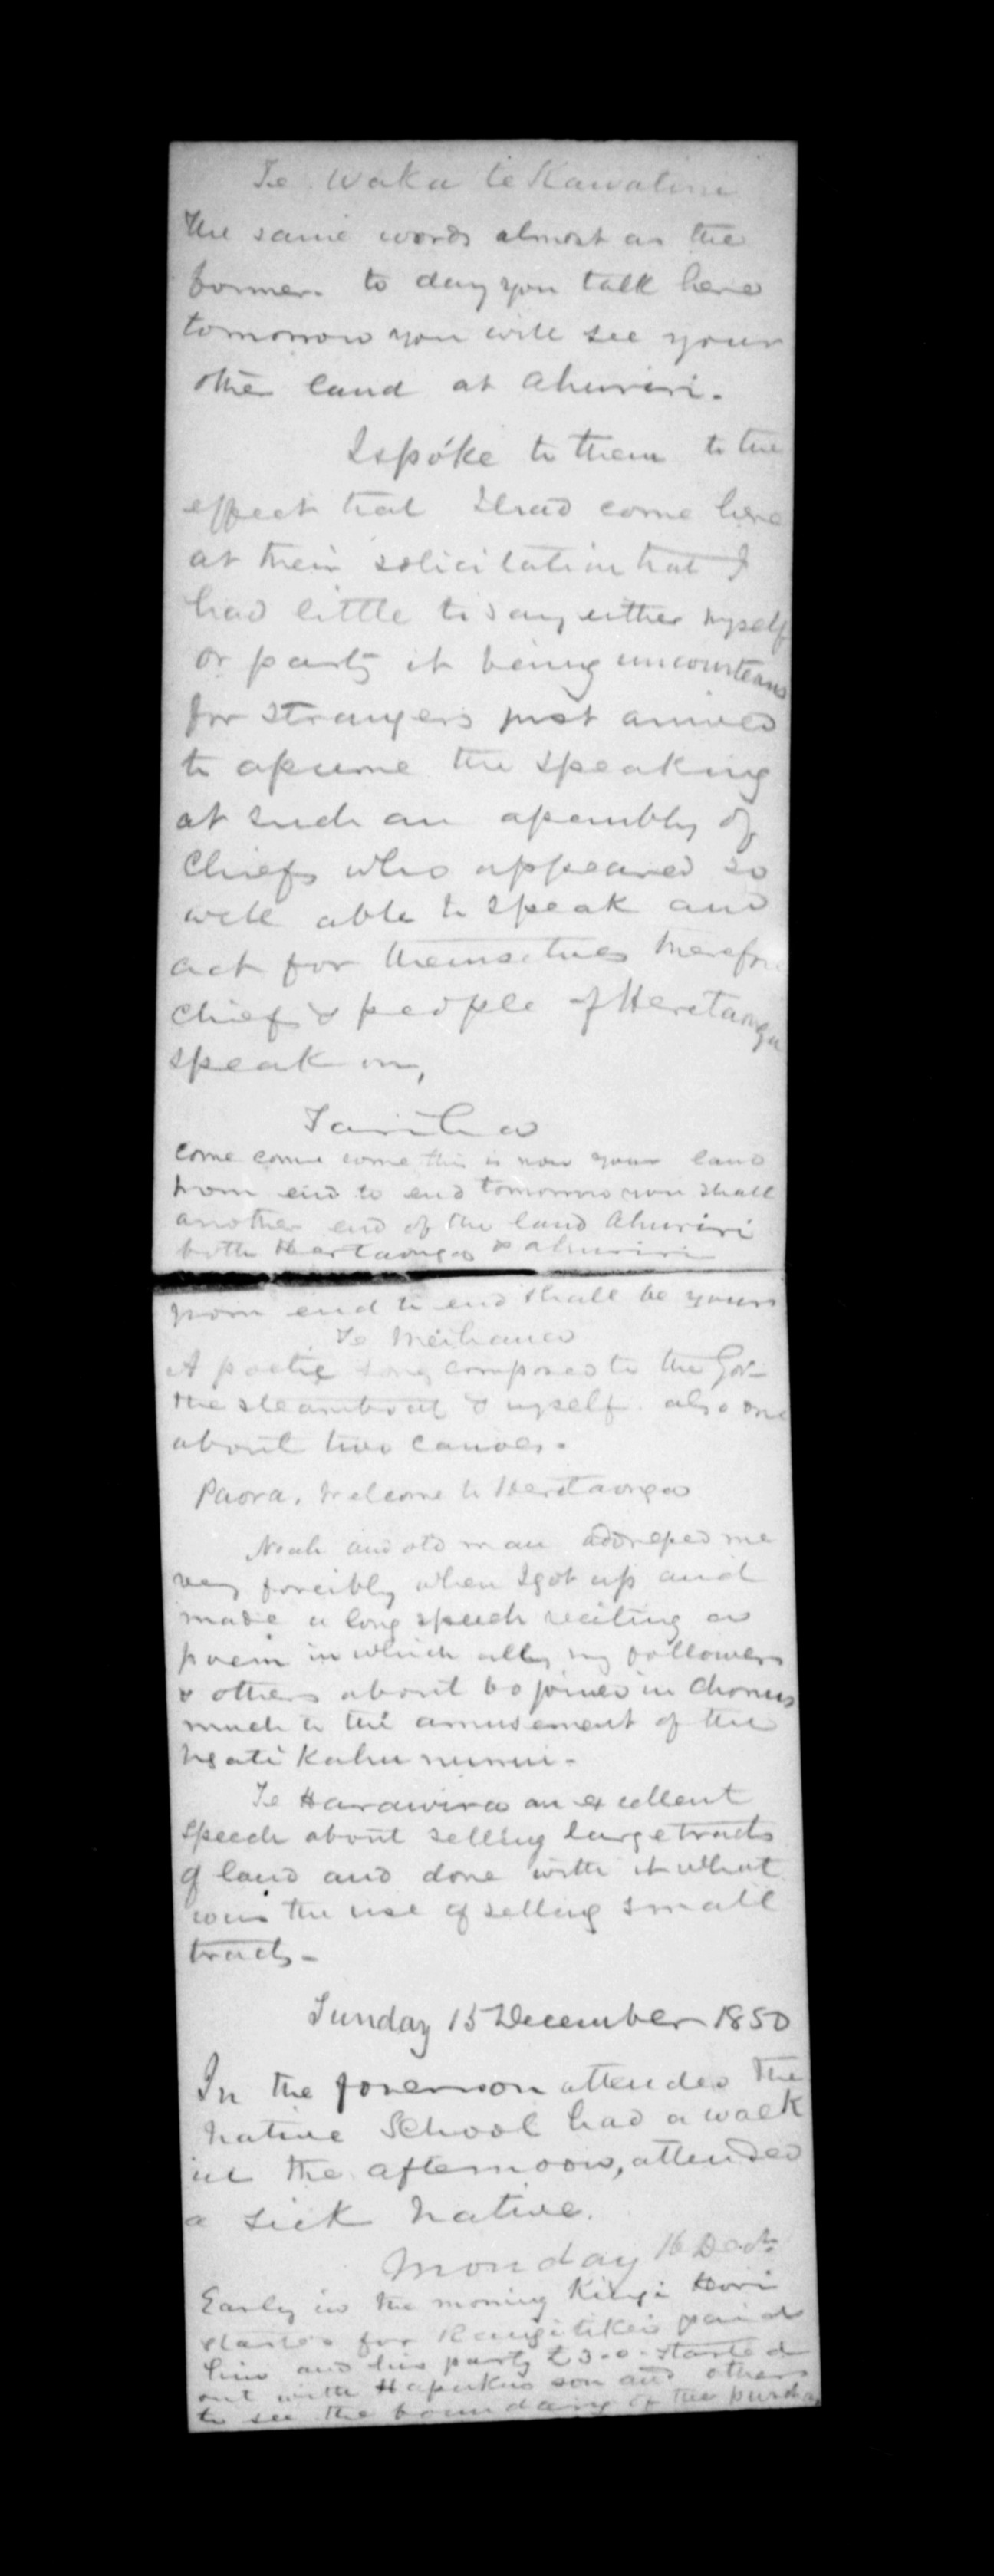 Te Waka te Kawatini
The same words almost as the
former. to day you talk here
tomorrow you will see your
other land at Ahuriri.
I spoke to them to the
effect that I had come here
at their solicitation that I
had little to say either myself
or party it being uncourteous
for strangers just arrived
to assume the speaking
at such an assembly of
Chiefs who appeared so
well able to speak and
act for themselves therefore
chiefs & people of Heretaunga
speak on,
Tareha
come come come this is now your land
from end to end tomorrow you shall
another end of the land Ahuriri
both Heretaunga & Ahuriri
from end to end shall be yours
Te Meihana
A poetic song composed to the Gov-
the steamboat & myself. also one
about two canoes.
Paora, Welcome to Heretaunga
Noah and old man addressed me
very forcibly when I got up and
made a long speech reciting a
poem in which all my followers
& others about 60 joined in chorus
much to the amusement of the
Ngati Kahununu.
Te Harawira an excellent
speech about selling large tracts
of land and done with it what
was the use of selling small
tracts-
Sunday 15 December 1850
In the forenoon attended the
native School had a walk
in the afternoon, attended
a sick native.
Monday 16 Decr.
Early in the morning Kingi Hori
started for Rangitikei paid
him and his party £3-0- started
out with Hapukus son and others
to see the boundary of the purcha